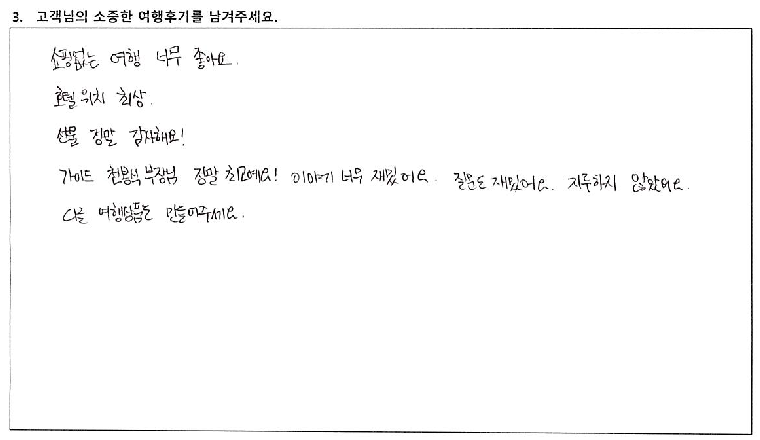 3. 고객님의 소중한 여행후기를 남겨주세요.
쇼핑없는 여행 너무 좋아요.
호텔 위치 최상.
선물 정말 감사해요!
가이드 천봉석 부장님 정말 최고예요! 이야기 너무 재밌어요. 질문도 재밌어요. 지루하지 않았어요.
다른 여행상품도 만들어주세요.